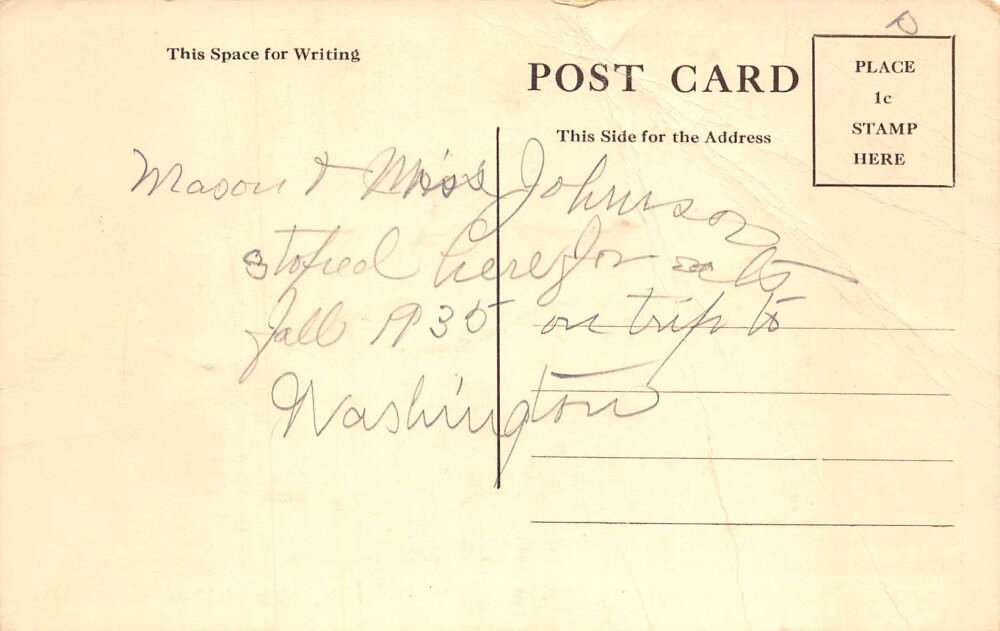 This Space for Writing
POST CARD
This Side for the Address
PLACE
1c
STAMP
HERE
Mason & Miss Johnson
stoped here for eats
fall 1935 on trip to
Washington